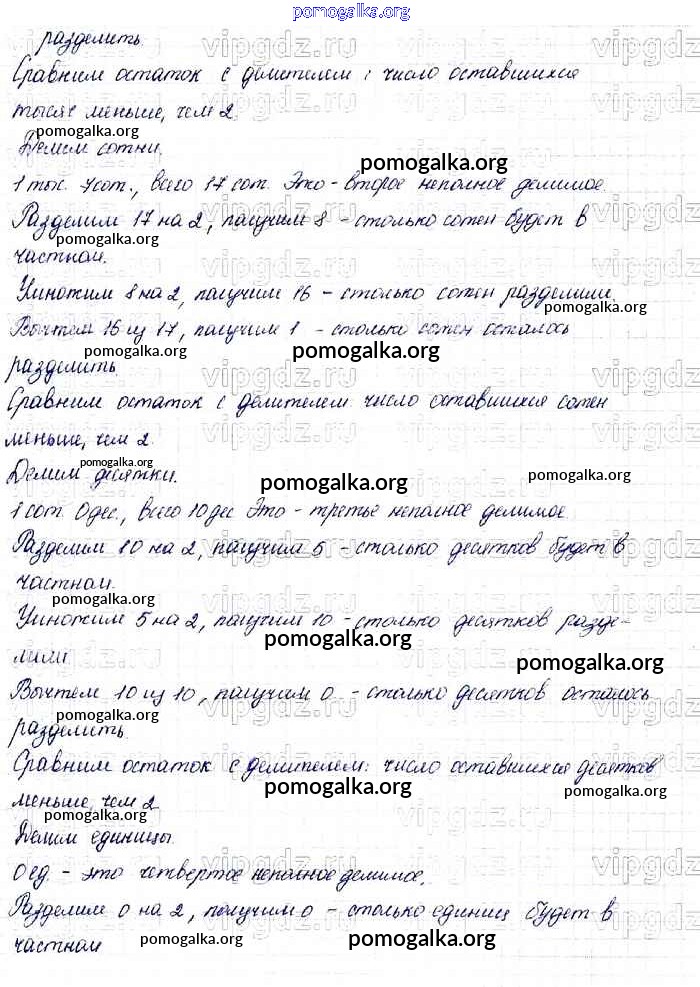 pomogalka.org
разделить.
Сравним остаток с делителем: число оставшихся
тысяч меньше, чем 2.
pomogalka.org
Делим сотни.
pomogalka.org
1 тыс. 7 сот., всего 17 сот. Это - второе неполное делимое.
Разделим 17 на 2, получим 8 - столько сотен будет в
pomogalka.org
частном.
Умножим 8 на 2, получим 16 - столько сотен разделили.
pomogalka.org
Вычтем 16 из 17, получим 1 - столько сотен осталось
pomogalka.org
pomogalka.org
разделить
Сравним остаток с делителем: число оставшихся сотен
меньше, чем 2.
pomogalka.org
Делим десятки.
pomogalka.org
pomogalka.org
1 сот. 0 дес., всего 10 дес Это - третье неполное делимое.
Разделим 10 на 2, получим 5 - столько десятков будет в
частном.
pomogalka.org
Умножим 5 на 2, получим 10 - столько десятков разде-
pomogalka.org
лили
pomogalka.org
Вычтем 10 из 10, получим 0 - столько десятков осталось
pomogalka.org
разделить.
Сравним остаток с делителем: число оставшихся десятков
pomogalka.org
pomogalka.org
меньше, чем 2
pomogalka.org
Делим единицы.
0 ед. - это четвертое неполное делимое.
Разделим 0 на 2, получим 0 - столько единиц будет в
частном
pomogalka.org
pomogalka.org
vipgdz.ru